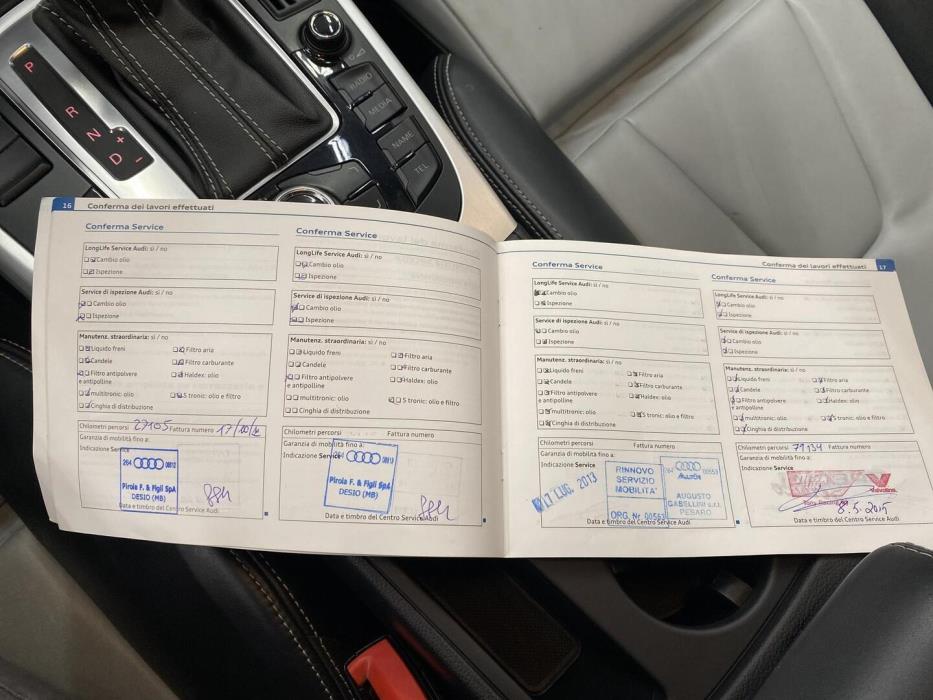 P
R
N
D
+
-
RADIO
MEDIA
NAME
TEL
16 Conferma dei lavori effettuati
Conferma Service
LongLife Service Audi: sì / no
Cambio olio
Ispezione
Service di ispezione Audi: sì / no
Cambio olio
Ispezione
Manutenz. straordinaria: sì / no
Liquido freni Filtro aria
Candele Filtro carburante
Filtro antipolvere Haldex: olio
e antipolline
multitronic: olio S tronic: olio e filtro
Cinghia di distribuzione
Chilometri percorsi 27105 Fattura numero
Garanzia di mobilità fino a:
Indicazione Service
Pirola F. & Figli SpA
DESIO (MB)
Data e timbro del Centro Service Audi
Conferma Service
LongLife Service Audi: sì / no
Cambio olio
Ispezione
Service di ispezione Audi: sì / no
Cambio olio
Ispezione
Manutenz. straordinaria: sì / no
Liquido freni Filtro aria
Candele Filtro carburante
Filtro antipolvere Haldex: olio
e antipolline
multitronic: olio S tronic: olio e filtro
Cinghia di distribuzione
Chilometri percorsi Fattura numero
Garanzia di mobilità fino a:
Indicazione Service
Pirola F. & Figli SpA
DESIO (MB)
Data e timbro del Centro Service Audi
Conferma dei lavori effettuati 17
Conferma Service
LongLife Service Audi: sì / no
Cambio olio
Ispezione
Service di ispezione Audi: sì / no
Cambio olio
Ispezione
Manutenz. straordinaria: sì / no
Liquido freni Filtro aria
Candele Filtro carburante
Filtro antipolvere Haldex: olio
e antipolline
multitronic: olio S tronic: olio e filtro
Cinghia di distribuzione
Chilometri percorsi Fattura numero
Garanzia di mobilità fino a:
Indicazione Service
17 LUG. 2013
RINNOVO
SERVIZIO
MOBILITA'
ORG. Nr. 00553
AUGUSTO
GABELLINI s.r.l.
PESARO
Data e timbro del Centro Service Audi
Conferma Service
LongLife Service Audi: sì / no
Cambio olio
Ispezione
Service di ispezione Audi: sì / no
Cambio olio
Ispezione
Manutenz. straordinaria: sì / no
Liquido freni Filtro aria
Candele Filtro carburante
Filtro antipolvere Haldex: olio
e antipolline
multitronic: olio S tronic: olio e filtro
Cinghia di distribuzione
Chilometri percorsi 79134 Fattura numero
Garanzia di mobilità fino a:
Indicazione Service
Valvoline
8.5.2015
Data e timbro del Centro Service Audi